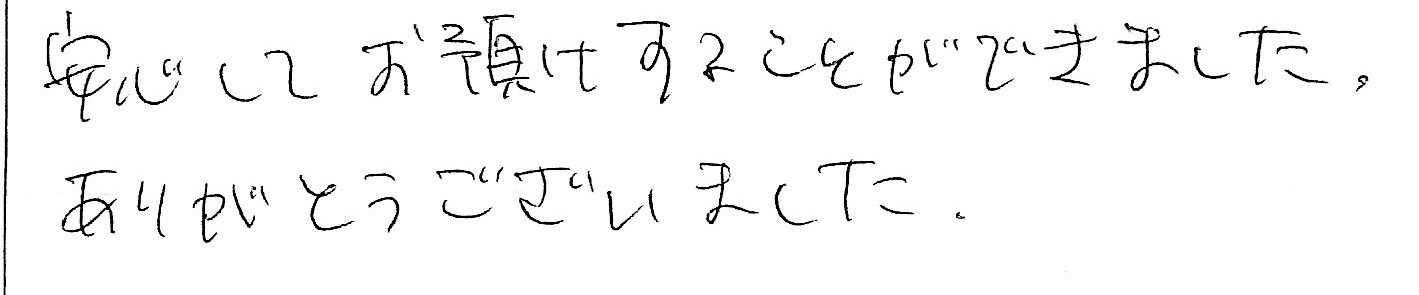 安心してお預けすることができました。
ありがとうございました。